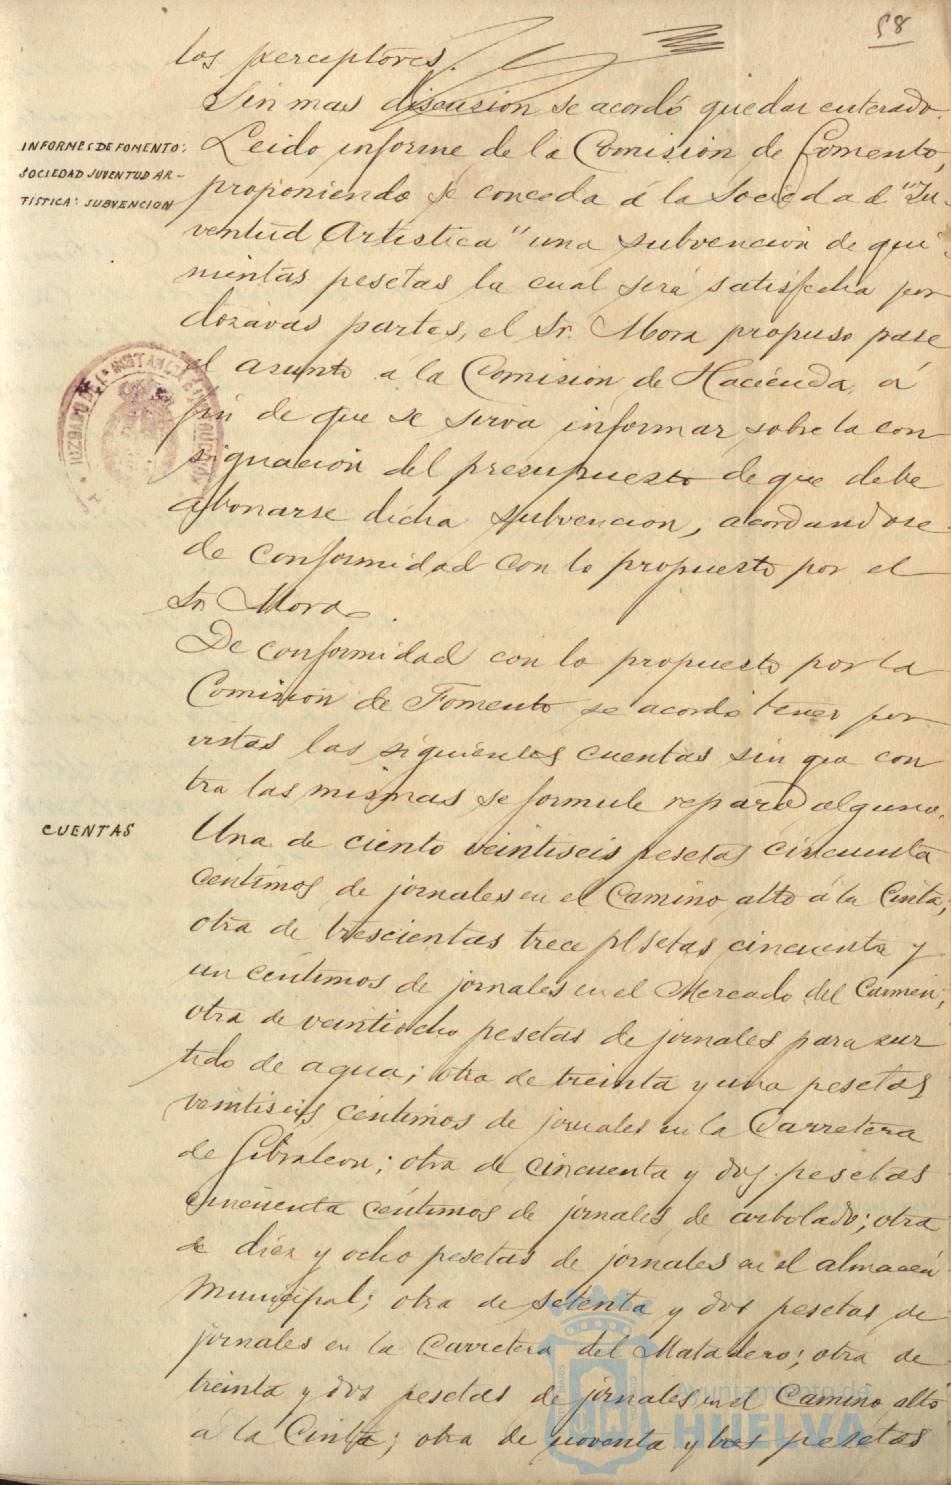 58
los perceptores.
Sin mas discusion se acordó quedar enterado.
INFORMES DE FOMENTO:
SOCIEDAD JUVENTUD AR-
TISTICA: SUBVENCION
Leido informe de la Comisión de Fomento,
proponiendo se conceda á la Sociedad "Ju-
ventud Artistica" una subvención de qui-
nientas pesetas la cual será satisfecha por
dozavas partes, el Sr. Mora propuso pase
el asunto a la Comisión de Hacienda á
fin de que se sirva informar sobre la con
signación del presupuesto de que debe
abonarse dicha subvencion, acordandose
de conformidad con lo propuesto por el
Sr. Mora.
De conformidad con lo propuesto por la
Comisión de Fomento se acordó tener por
vistas las siguientes cuentas sin que con
tra las mismas se formule reparo alguno.
CUENTAS
Una de ciento veintiseis pesetas cincuenta
céntimos de jornales en el Camino alto á la Cinta;
otra de trescientas trece pesetas cincuenta y
un céntimos de jornales en el Mercado del Carmen;
otra de veintiocho pesetas de jornales para sur
tido de agua; otra de treinta y una pesetas
veintiseis céntimos de jornales en la Carretera
de Gibraleon; otra de cincuenta y dos pesetas
cincuenta céntimos de jornales de arbolado; otra
de diez y ocho pesetas de jornales en el almacén
Municipal; otra de setenta y dos pesetas de
jornales en la Carretera del Matadero; otra de
treinta y dos pesetas de jornales en el Camino alto
á la Cinta; otra de noventa y tres pesetas
Ayuntamiento de
HUELVA